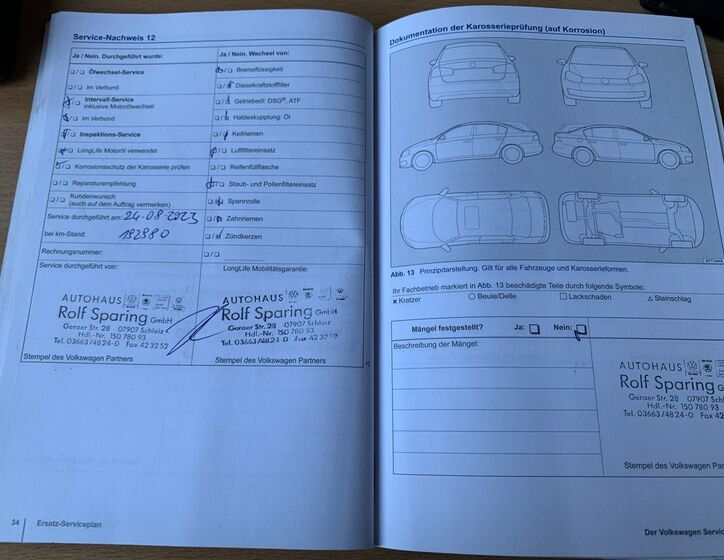 Service-Nachweis 12
Ja / Nein. Durchgeführt wurde:
Ölwechsel-Service
im Verbund
Intervall-Service
inklusive Motorölwechsel
im Verbund
Inspektions-Service
LongLife Motoröl verwendet
Korrosionsschutz der Karosserie prüfen
Reparaturempfehlung
Kundenwunsch
(auch auf dem Auftrag vermerken)
Service durchgeführt am: 24-08-2023
bei km-Stand: 192980
Rechnungsnummer:
Service durchgeführt von:
AUTOHAUS
Rolf Sparing GmbH
Geraer Str. 28 07907 Schleiz
Hdl.-Nr. 150 780 93
Tel. 03663/4824-0 Fax 42 32 52
Stempel des Volkswagen Partners
Ja / Nein. Wechsel von:
Bremsflüssigkeit
Dieselkraftstofffilter
Getriebeöl: DSG®, ATF
Haldexkupplung: Öl
Keilriemen
Luftfiltereinsatz
Reifenfüllflasche
Staub- und Pollenfiltereinsatz
Spannrolle
Zahnriemen
Zündkerzen
LongLife Mobilitätsgarantie:
AUTOHAUS
Rolf Sparing GmbH
Geraer Str. 28 07907 Schleiz
Hdl.-Nr. 150 780 93
Tel. 03663/4824-0 Fax 42 32 52
Stempel des Volkswagen Partners
34 Ersatz-Serviceplan
Dokumentation der Karosserieprüfung (auf Korrosion)
Abb. 13 Prinzipdarstellung. Gilt für alle Fahrzeuge und Karosserieformen.
Ihr Fachbetrieb markiert in Abb. 13 beschädigte Teile durch folgende Symbole:
× Kratzer ○ Beule/Delle □ Lackschaden △ Steinschlag
Mängel festgestellt? Ja: Nein:
Beschreibung der Mängel:
AUTOHAUS
Rolf Sparing G
Geraer Str. 28 07907 Schl
Hdl.-Nr. 150 780 93
Tel. 03663/4824-0 Fax 4
Stempel des Volkswagen Part
Der Volkswagen Servic